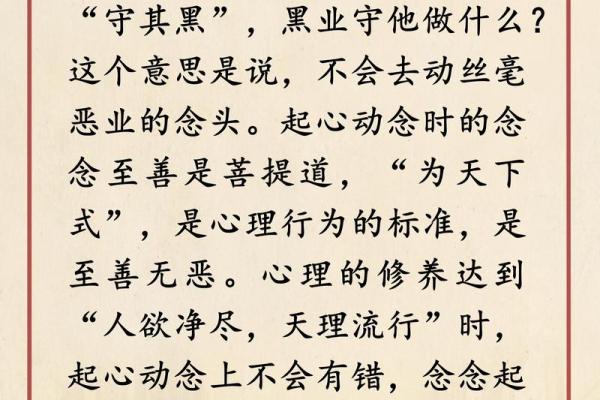 “守其黑”，黑业守他做什么？
这个意思是说，不会去动丝毫
恶业的念头。起心动念时的念
念至善是菩提道，“为天下
式”，是心理行为的标准，是
至善无恶。心理的修养达到
“人欲净尽，天理流行”时，
起心动念上不会有错，念念起